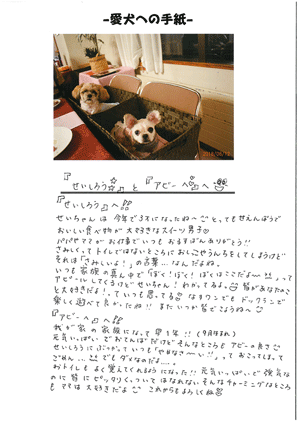 -愛犬への手紙-
『せいしろう』と『アビーへ』へ
『せいしろう』へ
せいちゃんは 今年で3才になったね〜 とってもせんぼうで
おいしい食べ物が大好きなスイーツ男子
パパやママがお仕事でいつもおるすばんありがとう!!
さみしくってトイレではないところにおしっこやうんちをしてしまうけど
それは「さみしいよ!」の言葉…なんだよね。
いつも家族の真ん中で「ぼく!ぼく!ぼくはここだよ〜!!」って
アピールしてくるけどせいちゃん!わかってるよ。皆があなたのこ
と大好きだよ!っていつも思ってる なすワンでもドックランで
楽しく遊べて良かったね!! またいつか皆でこようね〜
『アビーへ』へ
我が家の家族になって早1年!!
元気いっぱいでおてんばだけどそんなところもアビーの良さ
せいしろうにぶつかっていつも「やめなさ〜い!!」っておこってしまって
ごめん… でもダメなのだよ…。
おトイレもよく覚えてくれるようになった!! 元気いっぱいで強気な
のに皆にピッタリくっついてはなれないそんなチャーミングなところ
もママは大好きだよ これからもよろしくね